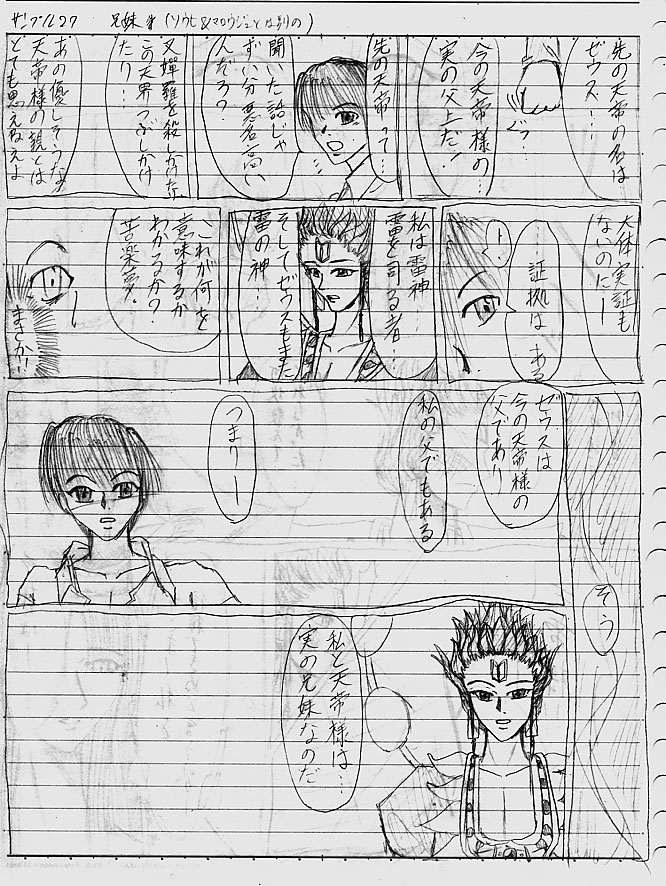 サンプル27
兄妹
(ソウヒ&マロウジュとは別の)
先の天帝の名は
ゼウス…
ぐっ…
今の天帝様の…
実の父上だ!
先の天帝
って…
聞いた話じゃ
ずい分悪名高い
んだろ?
叉蟬羅を殺しかけ
たり…
この天界つぶしかけ
あの優しそうな
天帝様の親とは
とても思えねえよ
大体実証も
ないのにー
…証拠はある
私は雷神…
雷を司る者…
そしてゼウスもまた
雷の神…
これが何を
意味するか
わかるか?
苦楽夢。
まさか…!
ゼウスは
今の天帝様の
父であり
私の父でもある
つまりー
そう
私と天帝様は…
実の兄妹なのだ